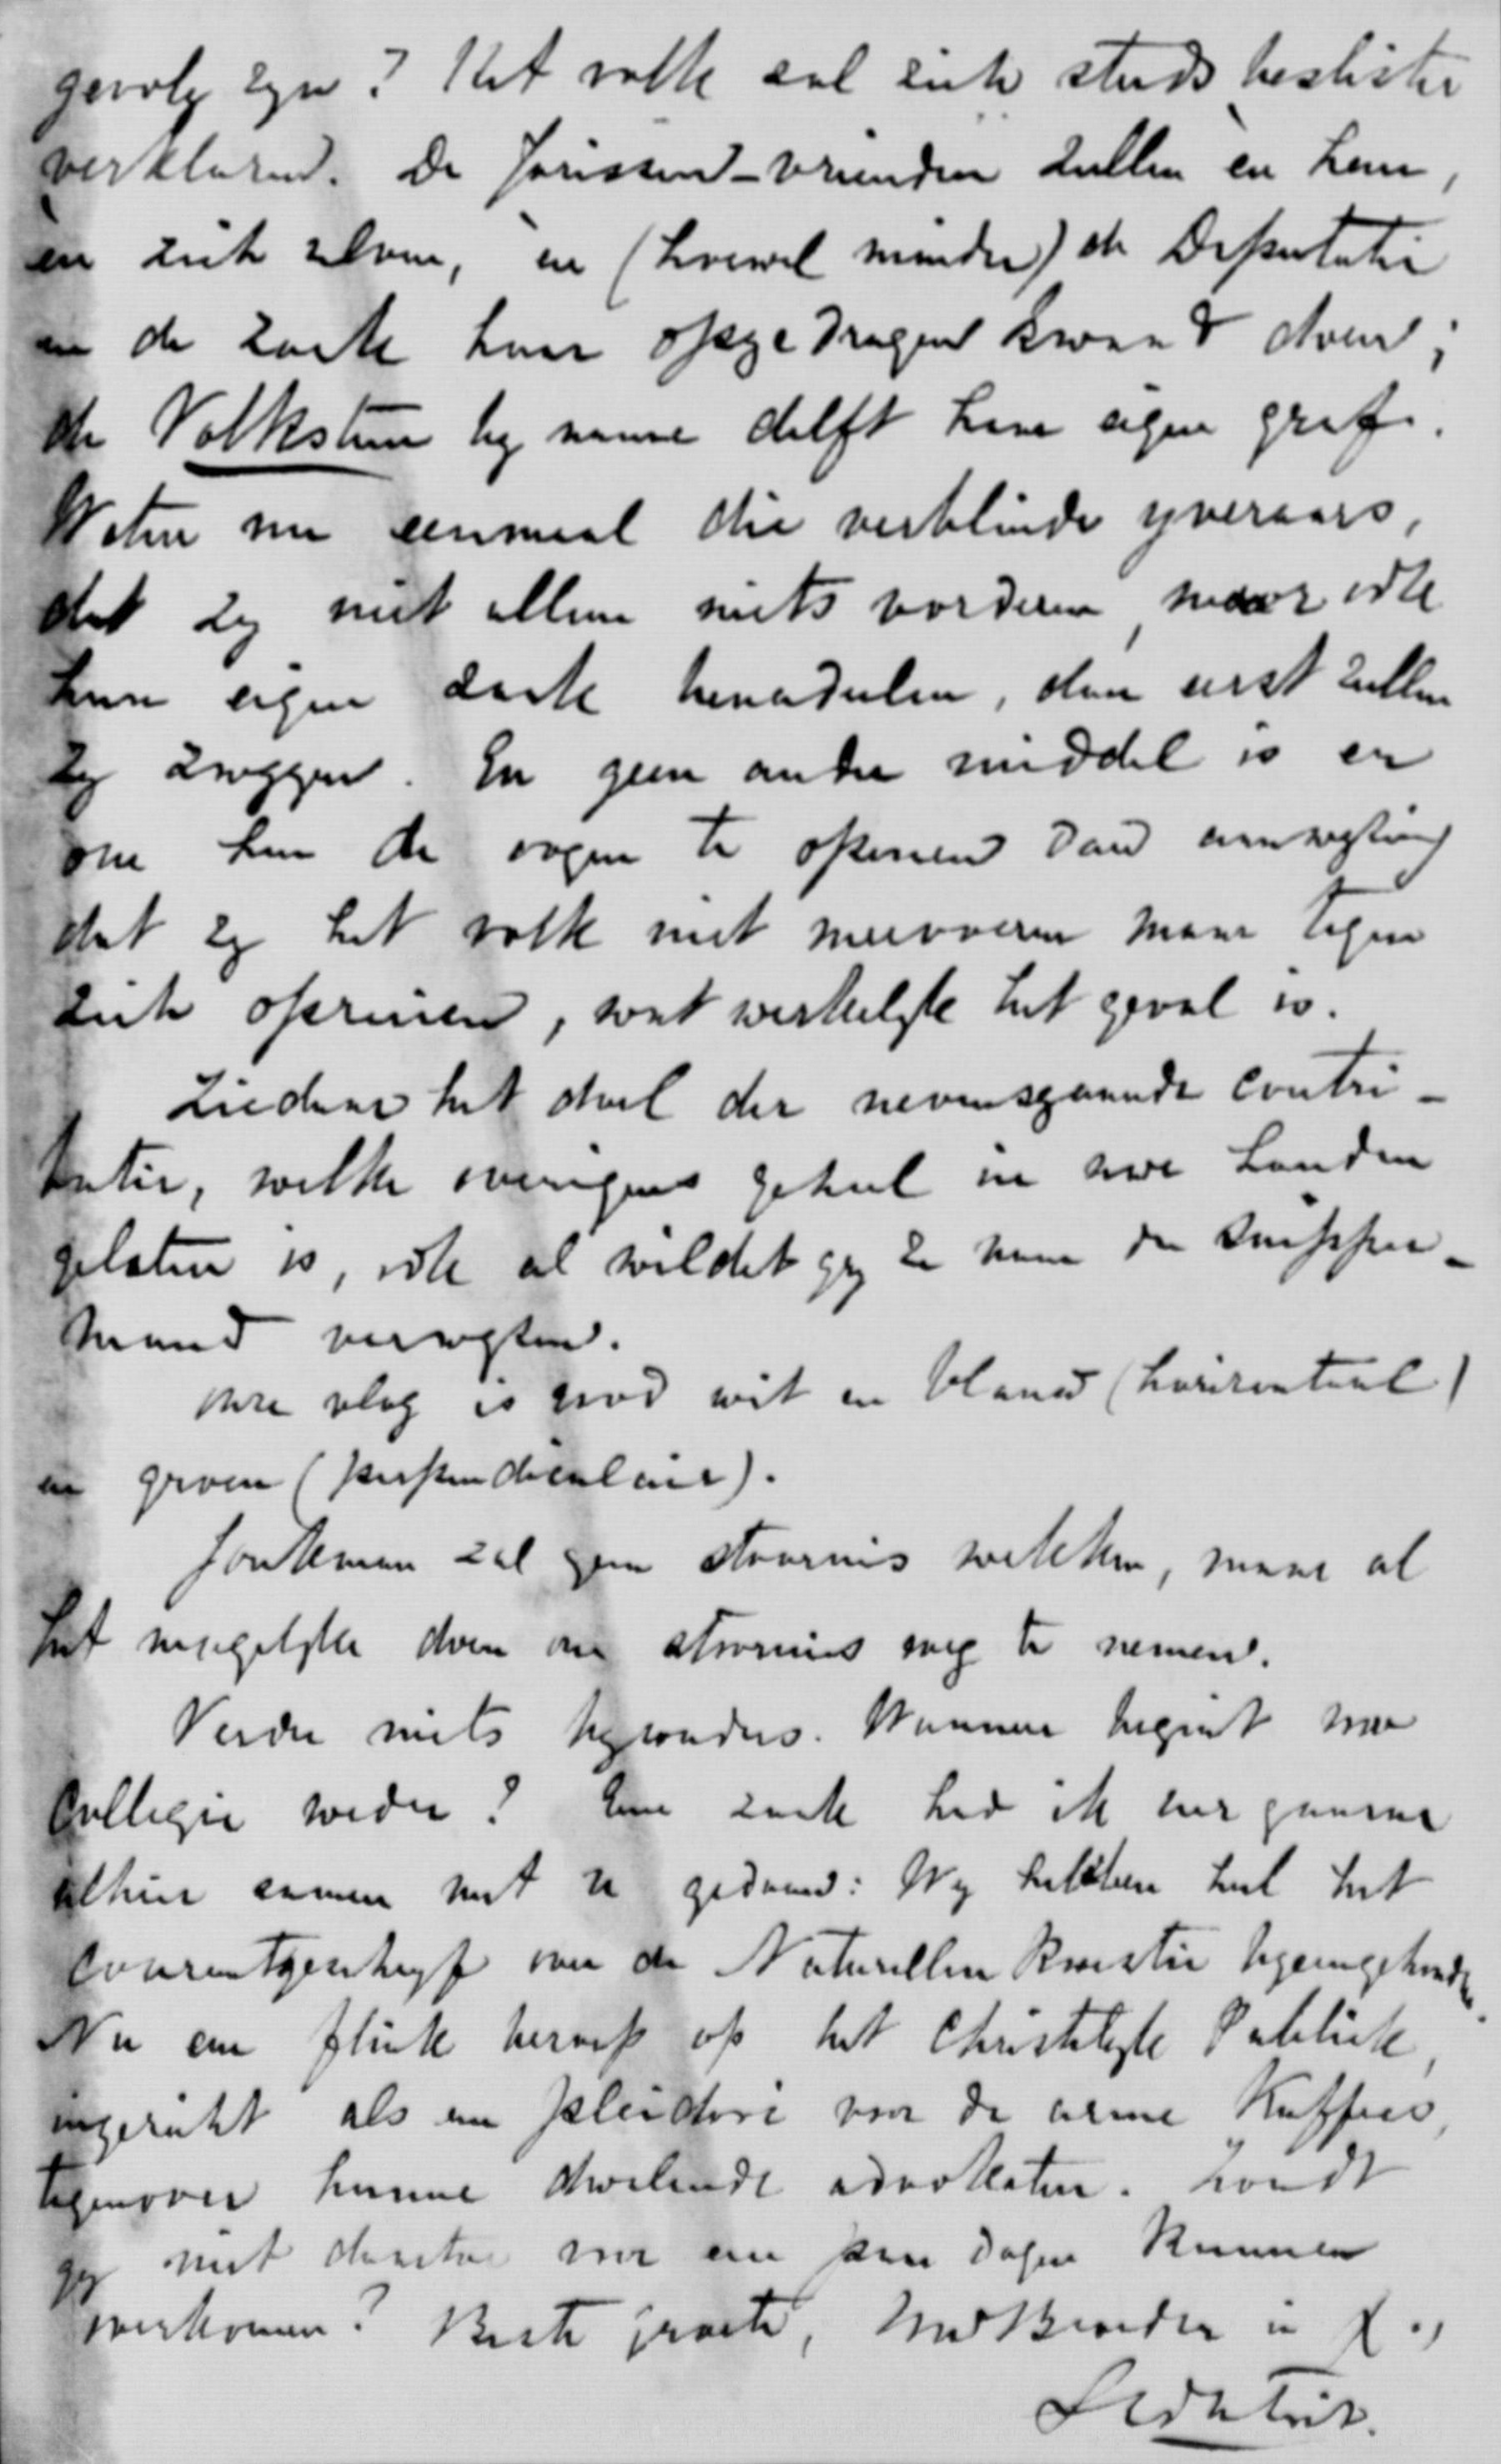 gevolg zyn? Het volk zal zich steeds beslister
verklaren. De Jorissen-vrienden zullen en hem,
en zich zelven, en (hoewel minder) de Deputatie
en de zaak haar opgedragen kwaad doen;
de Volksstem by name delft haar eigen graf.
Weten nu eenmaal die verblinde yveraars,
dat zy niet alleen niets vorderen, maar ook
hun eigen zaak benadeelen, dan eerst zullen
zy zwygen. En geen ander middel is er
om hun de oogen te openen dan
dat zy het volk niet meevoeren maar tegen
zich opruien, wat werkelyk het geval is.
Ziedaar het doel der nevensgaande contri-
butie, welke overigens geheel in uwe handen
gelaten is, ook al wildet gy ze naar de snipper-
mand verwysen.
Onze vlag is rood wit en blauw (horizontaal)
en groen (perpendiculair).
Jonkman zal geen stoornis wekken, maar al
het mogelyke doen om stoornis weg te nemen.
Verder niets byzonders. Wanneer begint uw
Collegie weder? Eene zaak had ik zeer gaarne
alhier samen met u gedaan: Wy hebben heel het
courantgeschryf over de Naturellen kwestie byeengehou
Nu een flink beroep op het Christelyk Publiek,
ingericht als een pleidooi voor de arme Kaffers,
tegenover hunne dwalende advokaten. Zoudt
gy niet daartoe voor een paar dagen kunnen
overkomen? Beste groete, Uw Broeder in X.,